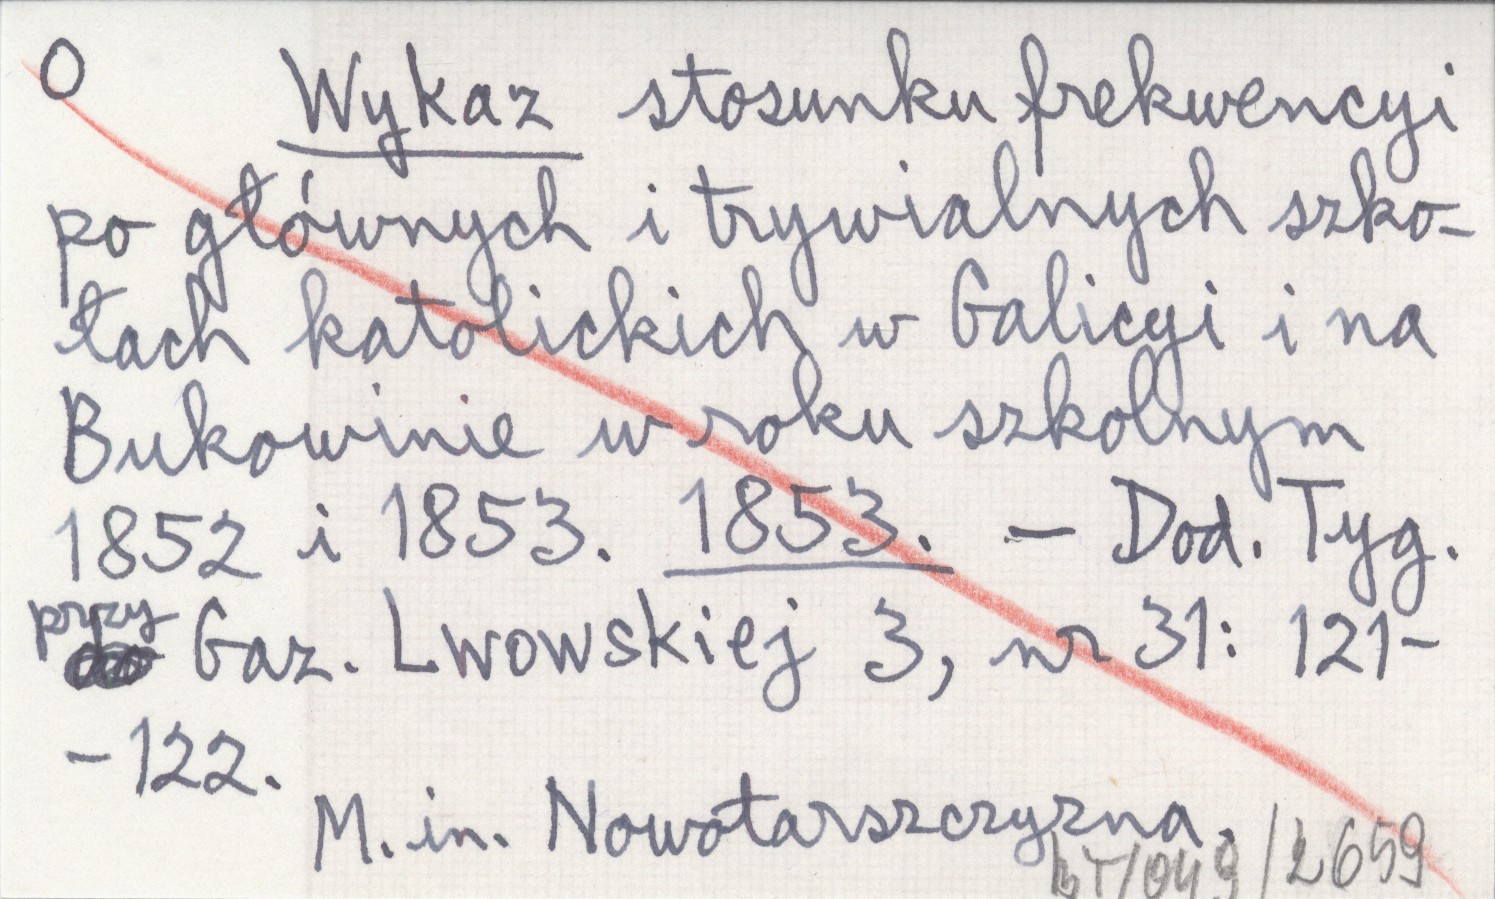 O Wykaz stosunku frekwencyi
po głównych i trywialnych szko-
łach katolickich w Galicyi i na
Bukowinie w roku szkolnym
1852 i 1853. 1853. – Dod. Tyg.
przy Gaz. Lwowskiej 3, nr 31: 121-
-122.
M. in. Nowotarszczyzna.
BT/049/2659